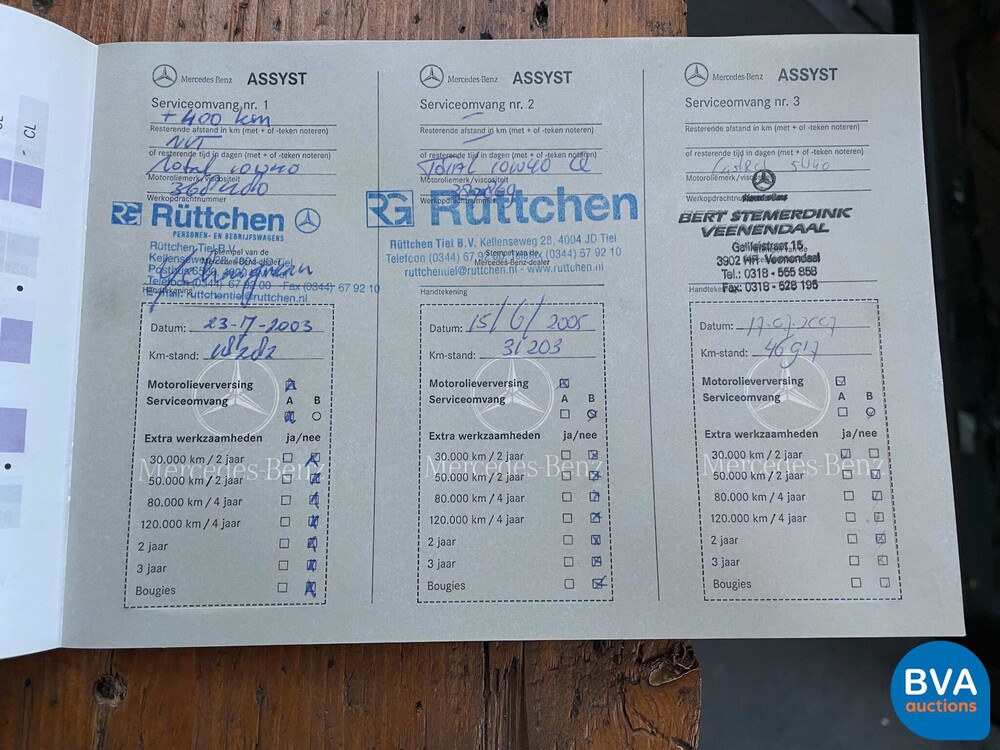 CL
Mercedes-Benz ASSYST
Serviceomvang nr. 1
+400 km
Resterende afstand in km (met + of -teken noteren)
NVT
of resterende tijd in dagen (met + of -teken noteren)
Total 10W40
Motoroliemerk/viscositeit
Werkopdrachtnummer
RG Rüttchen
PERSONEN- EN BEDRIJFSWAGENS
Rüttchen Tiel B.V.
Stempel van de
Mercedes-Benz-dealer
Telefoon (0344) 67 92 00 - Fax (0344) 67 92 10
Handtekening
E-mail: ruttchentiel@ruttchen.nl
Datum: 23-7-2003
Km-stand: 18282
Motorolieverversing
Serviceomvang A B
Extra werkzaamheden ja/nee
30.000 km / 2 jaar
50.000 km / 2 jaar
80.000 km / 4 jaar
120.000 km / 4 jaar
2 jaar
3 jaar
Bougies
Mercedes-Benz
Mercedes-Benz ASSYST
Serviceomvang nr. 2
Resterende afstand in km (met + of -teken noteren)
of resterende tijd in dagen (met + of -teken noteren)
TOTAL 10W40
Motoroliemerk/viscositeit
Werkopdrachtnummer
RG Rüttchen
Rüttchen Tiel B.V. Kellenseweg 28, 4004 JD Tiel
Stempel van de
Mercedes-Benz-dealer
ruttchentiel@ruttchen.nl - www.ruttchen.nl
Handtekening
Datum: 15/6/2005
Km-stand: 31203
Motorolieverversing
Serviceomvang A B
Extra werkzaamheden ja/nee
30.000 km / 2 jaar
50.000 km / 2 jaar
80.000 km / 4 jaar
120.000 km / 4 jaar
2 jaar
3 jaar
Bougies
Mercedes-Benz
Mercedes-Benz ASSYST
Serviceomvang nr. 3
Resterende afstand in km (met + of -teken noteren)
of resterende tijd in dagen (met + of -teken noteren)
Castrol 5W40
Motoroliemerk/viscositeit
Mercedes-Benz
Werkopdrachtnummer
BERT STEMERDINK
VEENENDAAL
Galileistraat 15
3902 HR Veenendaal
Tel.: 0318 - 555 858
Fax: 0318 - 528 195
Datum: 17-07-2007
Km-stand: 46917
Motorolieverversing
Serviceomvang A B
Extra werkzaamheden ja/nee
30.000 km / 2 jaar
50.000 km / 2 jaar
80.000 km / 4 jaar
120.000 km / 4 jaar
2 jaar
3 jaar
Bougies
Mercedes-Benz
BVA
auctions